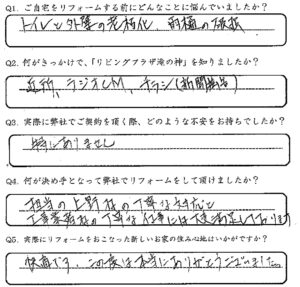 Q1. ご自宅をリフォームする前にどんなことに悩んでいましたか?
トイレと外壁の老朽化、雨樋の破損
Q2. 何がきっかけで、『リビングプラザ滝の神』を知りましたか?
近所、ラジオCM、チラシ(新聞広告)
Q3. 実際に弊社でご契約を頂く際、どのような不安をお持ちでしたか?
特にありません
Q4. 何が決め手となって弊社でリフォームをして頂けましたか?
担当の上野様の丁寧な対応と
工事業者様の丁寧な仕事には大変満足しております
Q5. 実際にリフォームをおこなった新しいお家の住み心地はいかがですか?
快適です。この度は本当にありがとうございました。